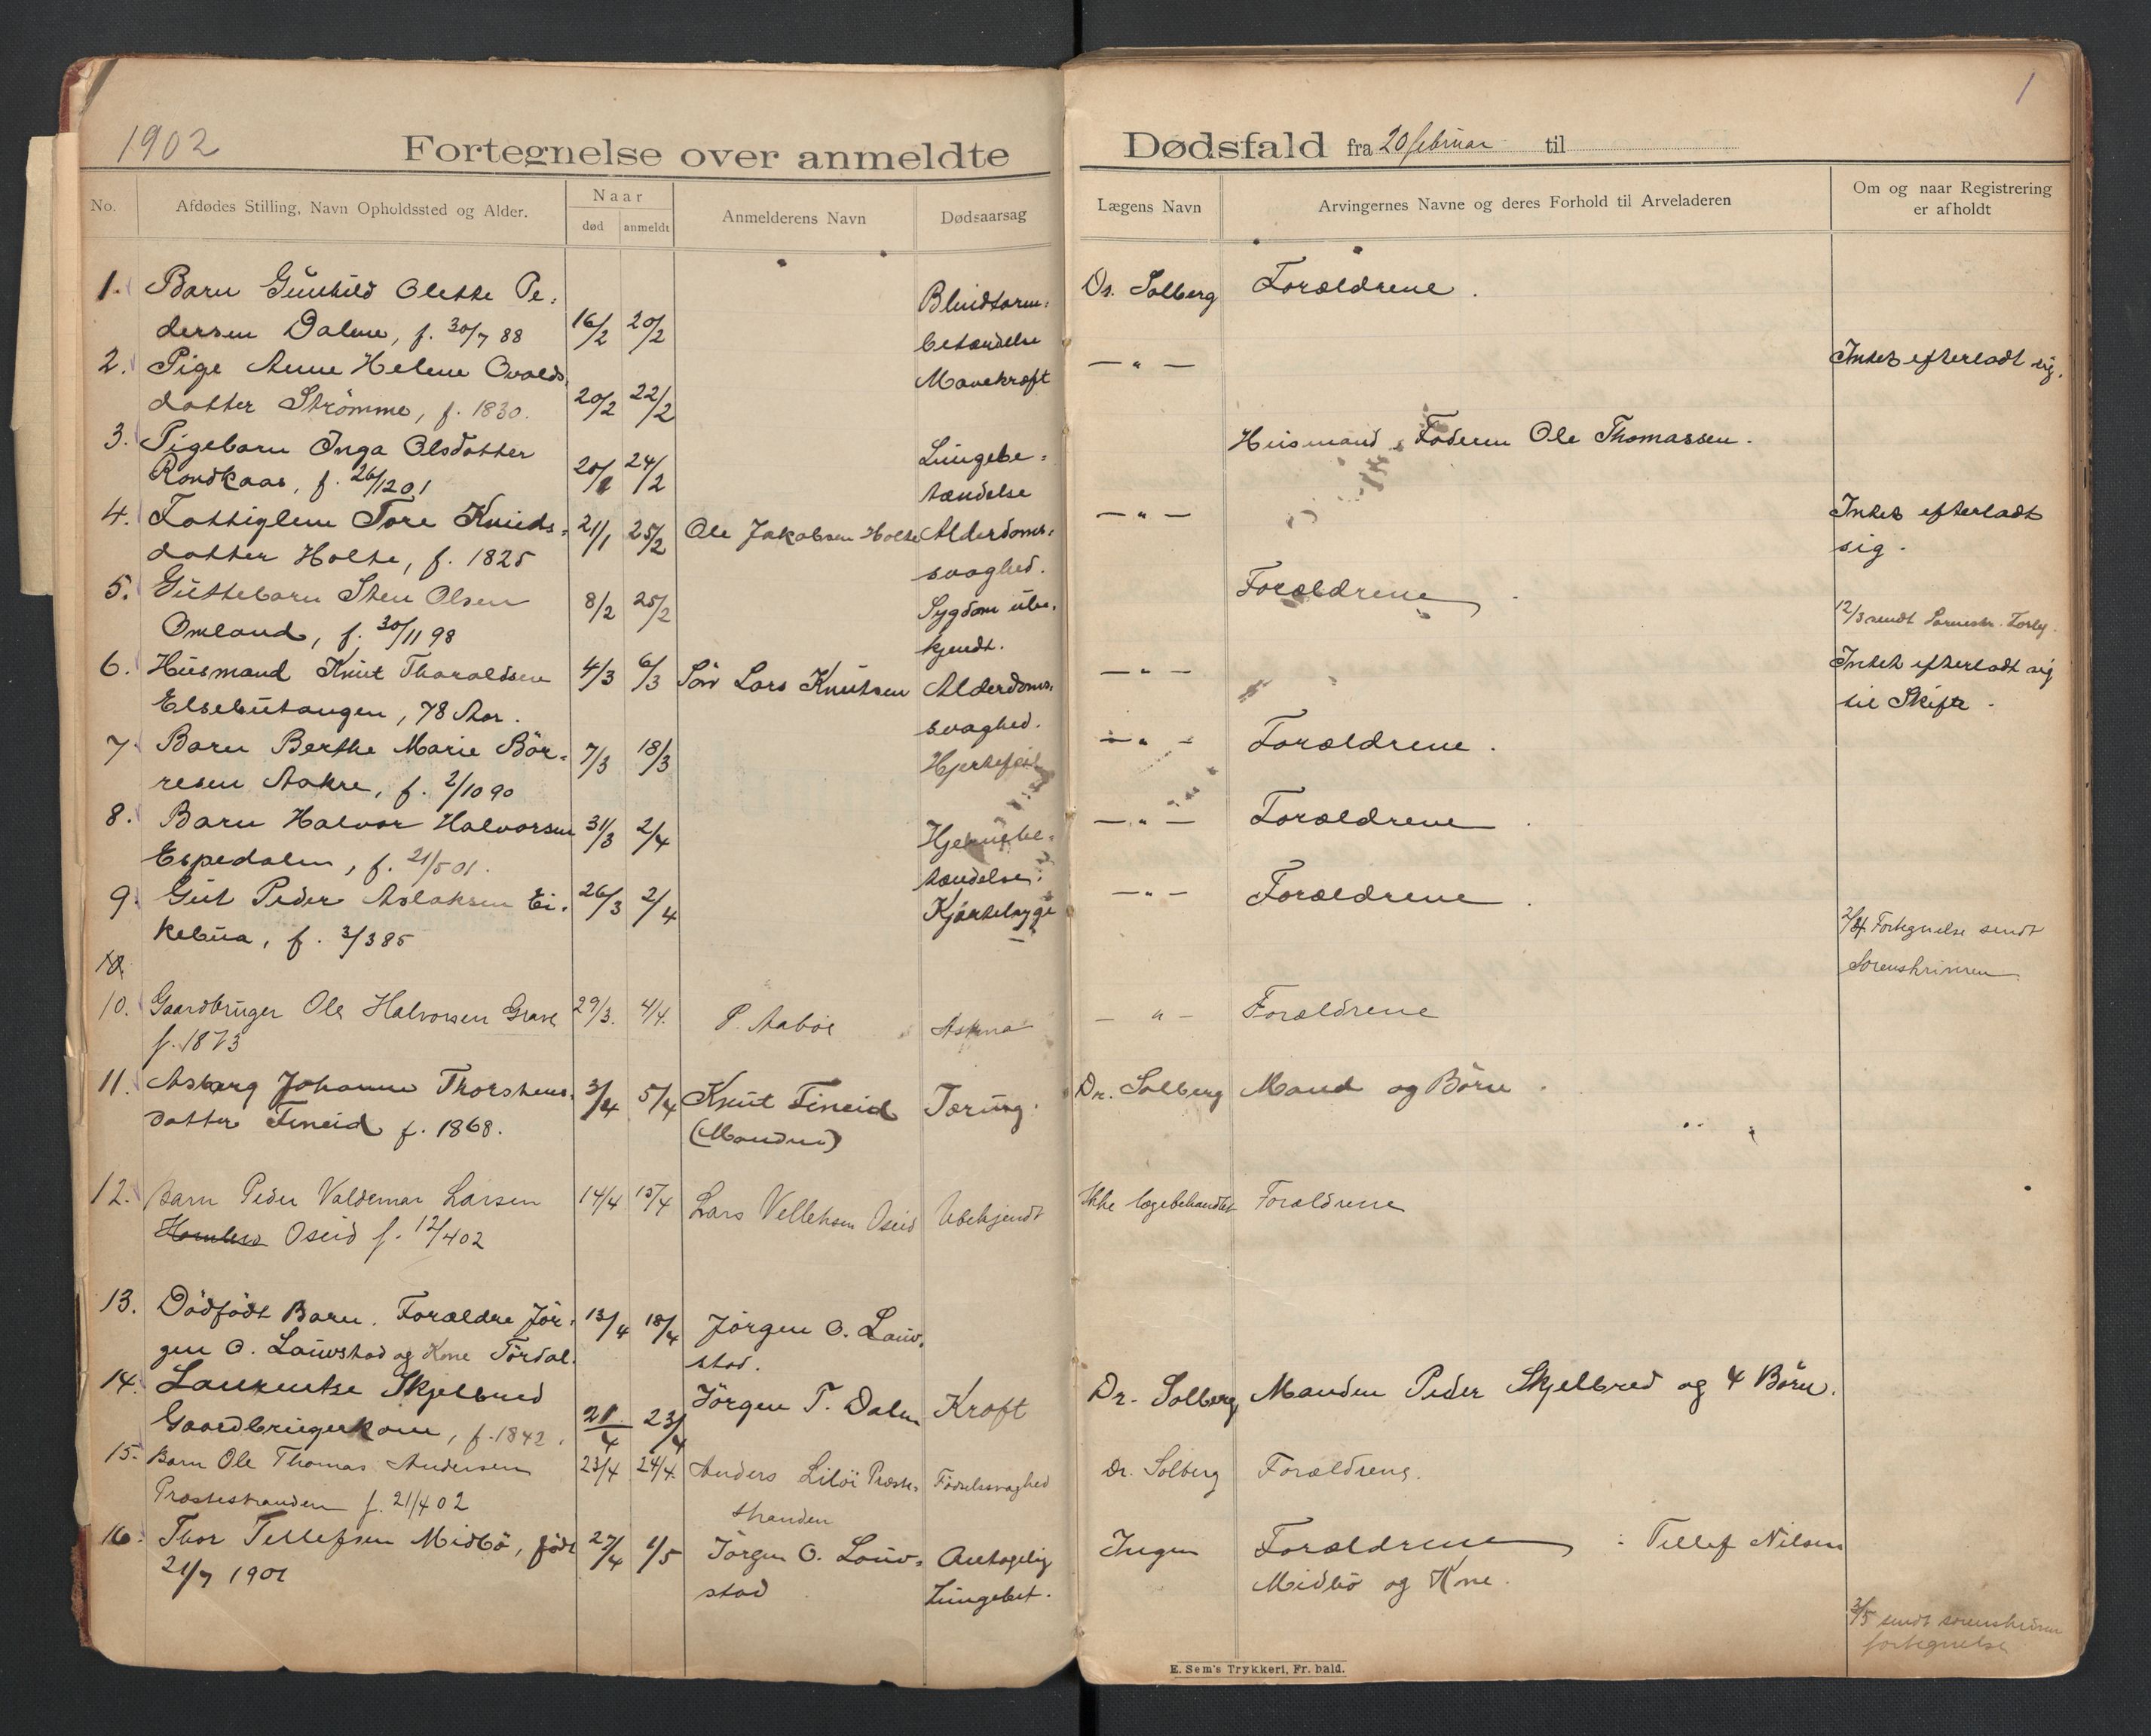 1
1902
Fortegnelse over anmeldte Dødsfald fra 20 februar til
No. Afdødes Stilling, Navn Opholdssted og Alder. Naar død anmeldt Anmelderens Navn Dødsaarsag Lægens Navn Arvingernes Navne og deres Forhold til Arveladeren Om og naar Registrering er afholdt
1. Barn Gunhild Olette Pe- Blindtarm- Dr. Solberg Forældrene.
dersen Dalene, f. 30/7 88 16/2 20/2 betændelse
2. Pige Anne Helene Ovalds Mavekræft — " — Intet efterladt sig.
datter Strömme, f. 1830. 20/2 22/2
3. Pigebarn Inga Olsdatter Lungebe- Husmand, Faderen Ole Thomassen.
f. 26/12 01 24/2 tændelse
4. Fattiglem Tore Knuds- 21/1 25/2 Ole Jakobsen Holte Alderdoms- — " — Intet efterladt
datter Holte, f. 1825 svaghed. sig.
5. Guttebarn Sten Olsen 8/2 25/2 Sygdom ube- Forældrene.
Omland, f. 30/11 98 kjendt. 12/3 sendt
6. Husmand Knut Tharaldsen 4/3 6/3 Sön Lars Knutsen Alderdoms- — " — Intet efterladt sig
Elsebutangen, 78 Aar. svaghed. til Skifte.
7. Barn Berthe Marie Bör- 7/3 18/3 Hjertefeil — " — Forældrene.
resen Aakre, f. 2/10 90
8. Barn Halvor Halvorsen 31/3 2/4 Hjernebe- — " — Forældrene.
Espedalen, f. 21/5 01. tændelse.
9. Gut Peder Aslaksen Ei- 26/3 2/4 — " — Forældrene.
kebua, f. 3/3 85 Fortegnelse sendt
Sorenskriveren
10. Gaardbruger Ole Halvorsen Grave 29/3. 4/4. P. Aaböe Astma — " — Forældrene
f. 1873
11. Asberg Johanne Thorstens- 3/4 5/4 Knut Fineid Tæring. Dr. Solberg Mand og Börn.
datter Fineid f. 1868. (Manden)
12. Barn Peder Valdemar Larsen 14/4 15/4 Lars Vellehsen Oseid Ubekjendt Ikke lægebehandlet Forældrene
Oseid f. 12/4 02
13. Dödfödt Barn. Forældre Jör- 13/4 18/4 Jörgen O. Lauv-
gen O. Lauvstad og Kone Tördal. stad.
14. Laurentse Skjelbred Jörgen T. Dalen Kræft Dr. Solberg Manden Peder Skjelbred og 4 Börn.
Gaardbrugerkone, f. 1842. 21/4 23/4
15. Barn Ole Thomas Andersen 23/4 24/4 Anders Lilöi Præste- Födselssvaghed Dr. Solberg Forældrene.
Præstestranden f. 21/4 02 stranden
16. Thor Tellefsen Midbö, född 27/4 1/5 Jörgen O. Lauv- Antagelig Ingen Forældrene: Tellef Nilsen
21/7 1901 stad Lungebet. Midbö og Kone.
3/5 sendt sorenskriveren
fortegnelse
E. Sem's Trykkeri, Fr. hald.